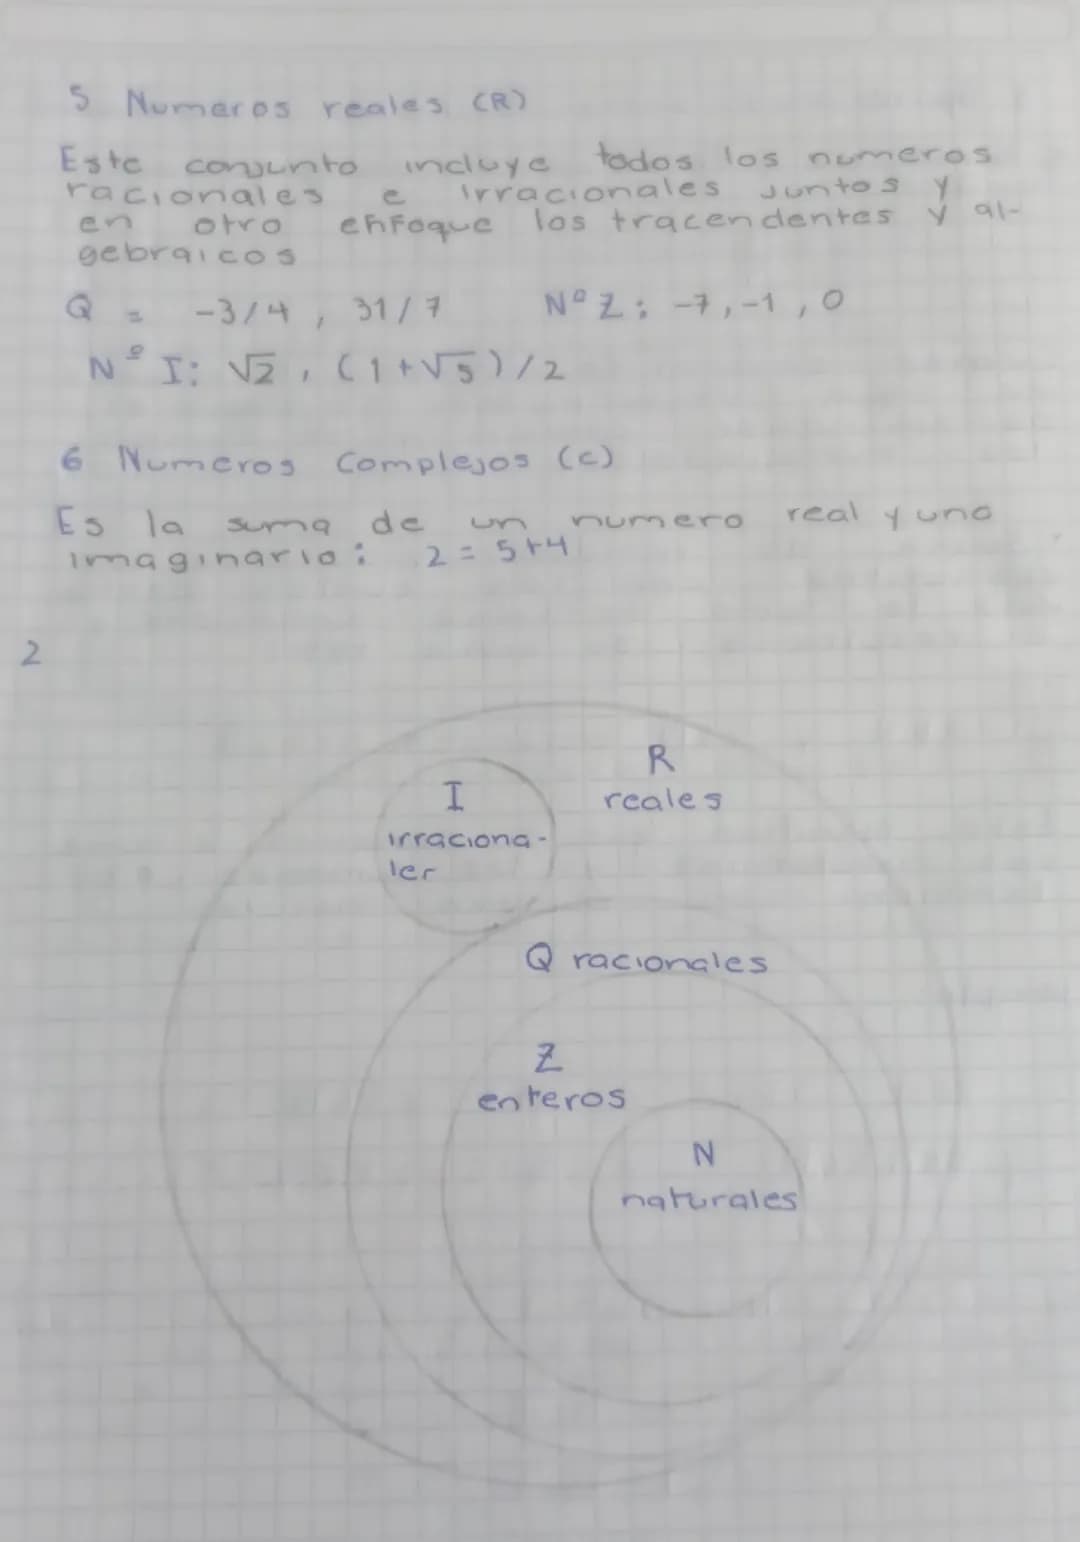 5 Numeros reales (R)
Este conjunto incluye todos los numeros
racionales e irracionales juntos y
en otro enfoque los tracendentes y al-
gebraicos
Q = -3/4, 31/7 Nº Z: -7, -1, 0
Nº I: √2, (1+√5)/2
6 Numeros Complejos (c)
Es la suma de un numero real y uno
imaginario: 2 = 5+4
2
R
reales
I
irraciona-
ler
Q racionales
Z
enteros
N
naturales